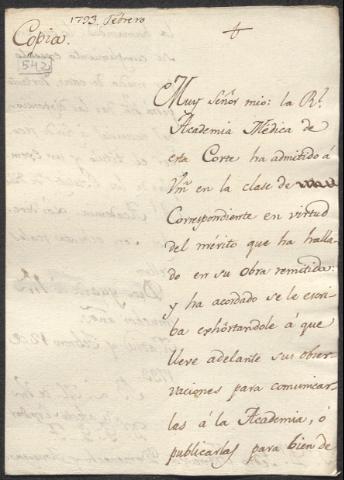 1793. Febrero
Copia.
542
Muy Señor mio: la Rl.
Academia Médica de
esta Corte ha admitido á
Vm en la clase de
Correspondiente en virtud
del mérito que ha halla-
do en su obra remitida:
y ha acordado se le escri-
ba exhòrtandole á que
lleve adelante sus obser-
vaciones para comunicar-
las á la Academia, ó
publicarlas para bien de